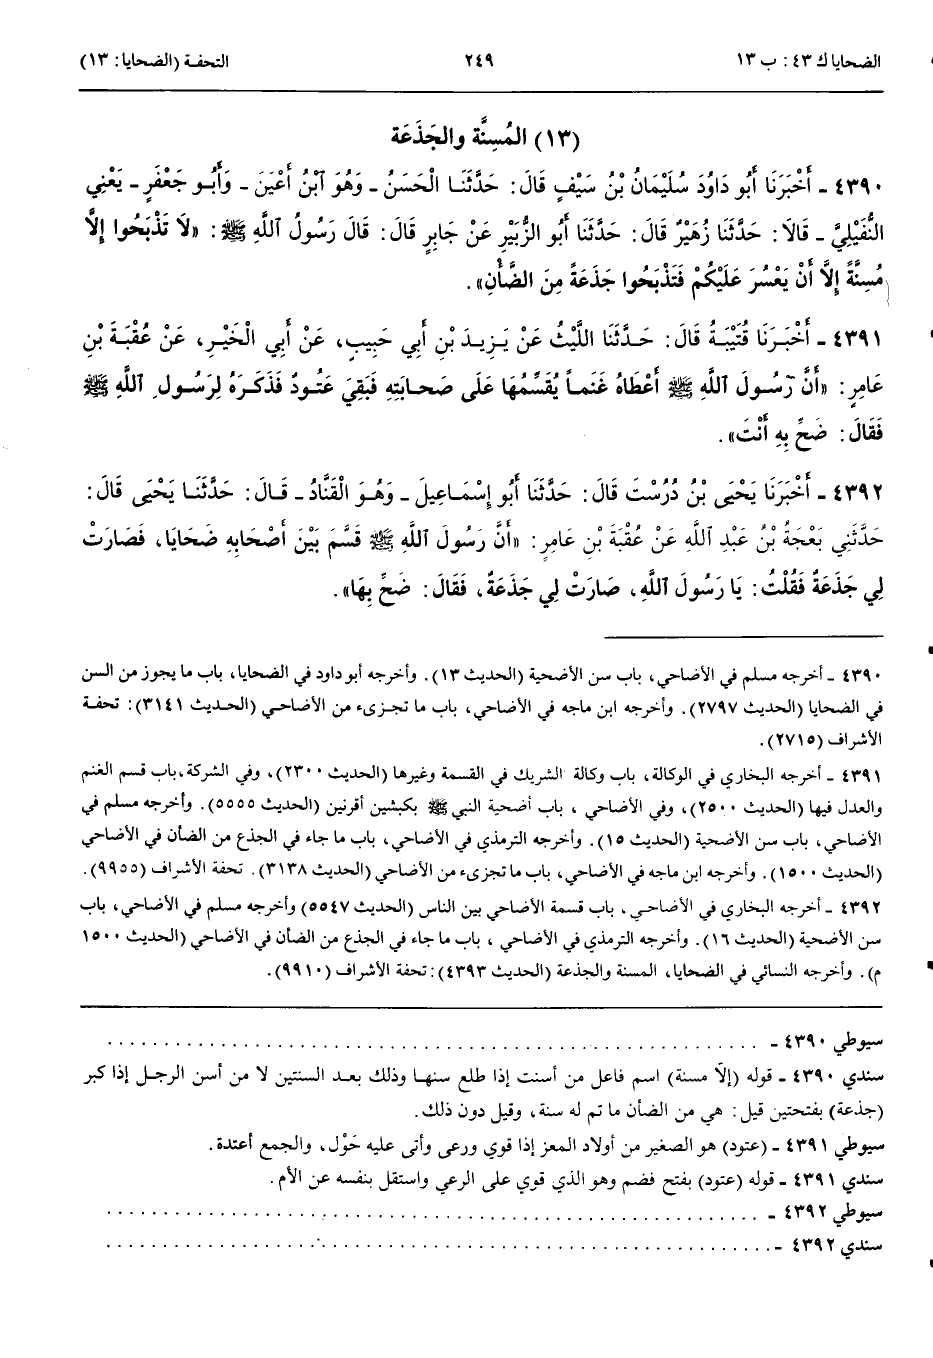 الضحايا ك ٤٣: ب ١٣ ٢٤٩ التحفة (الضحايا: ١٣)
(١٣) المُسِنَّة والجَذَعَة
٤٣٩٠ - أَخْبَرَنَا أَبُو دَاوُدَ سُلَيْمَانُ بْنُ سَيْفٍ قَالَ: حَدَّثَنَا الْحَسَنُ - وَهُوَ ٱبْنُ أَعْيَنَ - وَأَبُو جَعْفَرٍ - يَعْنِي
النُّفَيْلِيَّ - قَالَا: حَدَّثَنَا زُهَيْرٌ قَالَ: حَدَّثَنَا أَبُو الزُّبَيْرِ عَنْ جَابِرٍ قَالَ: قَالَ رَسُولُ ٱللَّهِ ﷺ: «لَا تَذْبَحُوا إِلَّا
مُسِنَّةً إِلَّا أَنْ يَعْسُرَ عَلَيْكُمْ فَتَذْبَحُوا جَذَعَةً مِنَ الضَّأْنِ».
٤٣٩١ - أَخْبَرَنَا قُتَيْبَةُ قَالَ: حَدَّثَنَا اللَّيْثُ عَنْ يَزِيدَ بْنِ أَبِي حَبِيبٍ، عَنْ أَبِي الْخَيْرِ، عَنْ عُقْبَةَ بْنِ
عَامِرٍ: «أَنَّ رَسُولَ ٱللَّهِ ﷺ أَعْطَاهُ غَنَماً يُقَسِّمُهَا عَلَى صَحَابَتِهِ فَبَقِيَ عَتُودٌ فَذَكَرَهُ لِرَسُولِ ٱللَّهِ ﷺ
فَقَالَ: ضَحِّ بِهِ أَنْتَ».
٤٣٩٢ - أَخْبَرَنَا يَحْيَى بْنُ دُرُسْتَ قَالَ: حَدَّثَنَا أَبُو إِسْمَاعِيلَ - وَهُوَ الْقَنَّادُ - قَالَ: حَدَّثَنَا يَحْيَى قَالَ:
حَدَّثَنِي بَعْجَةُ بْنُ عَبْدِ ٱللَّهِ عَنْ عُقْبَةَ بْنِ عَامِرٍ: «أَنَّ رَسُولَ ٱللَّهِ ﷺ قَسَّمَ بَيْنَ أَصْحَابِهِ ضَحَايَا، فَصَارَتْ
لِي جَذَعَةٌ فَقُلْتُ: يَا رَسُولَ ٱللَّهِ، صَارَتْ لِي جَذَعَةٌ، فَقَالَ: ضَحِّ بِهَا».
٤٣٩٠ - أخرجه مسلم في الأضاحي، باب سن الأضحية (الحديث ١٣). وأخرجه أبو داود في الضحايا، باب ما يجوز من السن
في الضحايا (الحديث ٢٧٩٧). وأخرجه ابن ماجه في الأضاحي، باب ما تجزىء من الأضاحي (الحديث ٣١٤١): تحفة
الأشراف (٢٧١٥).
٤٣٩١ - أخرجه البخاري في الوكالة، باب وكالة الشريك في القسمة وغيرها (الحديث ٢٣٠٠)، وفي الشركة، باب قسم الغنم
والعدل فيها (الحديث ٢٥٠٠)، وفي الأضاحي، باب أضحية النبي ﷺ بكبشين أقرنين (الحديث ٥٥٥٥). وأخرجه مسلم في
الأضاحي، باب سن الأضحية (الحديث ١٥). وأخرجه الترمذي في الأضاحي، باب ما جاء في الجذع من الضأن في الأضاحي
(الحديث ١٥٠٠). وأخرجه ابن ماجه في الأضاحي، باب ما تجزىء من الأضاحي (الحديث ٣١٣٨). تحفة الأشراف (٩٩٥٥).
٤٣٩٢ - أخرجه البخاري في الأضاحي، باب قسمة الأضاحي بين الناس (الحديث ٥٥٤٧) وأخرجه مسلم في الأضاحي، باب
سن الأضحية (الحديث ١٦). وأخرجه الترمذي في الأضاحي، باب ما جاء في الجذع من الضأن في الأضاحي (الحديث ١٥٠٠
م). وأخرجه النسائي في الضحايا، المسنة والجذعة (الحديث ٤٣٩٣): تحفة الأشراف (٩٩١٠).
سيوطي ٤٣٩٠ - . . . . . . . . . . . . . . . . . . . . . . . .
سندي ٤٣٩٠ - قوله (إلاّ مسنة) اسم فاعل من أسنت إذا طلع سنها وذلك بعد السنتين لا من أسن الرجل إذا كبر
(جذعة) بفتحتين قيل: هي من الضأن ما تم له سنة، وقيل دون ذلك.
سيوطي ٤٣٩١ - (عتود) هو الصغير من أولاد المعز إذا قوي ورعى وأتى عليه حَوْل، والجمع أعتدة.
سندي ٤٣٩١ - قوله (عتود) بفتح فضم وهو الذي قوي على الرعي واستقل بنفسه عن الأم.
سيوطي ٤٣٩٢ - . . . . . . . . . . . . . . . . . . . . . . . .
سندي ٤٣٩٢ - . . . . . . . . . . . . . . . . . . . . . . . .